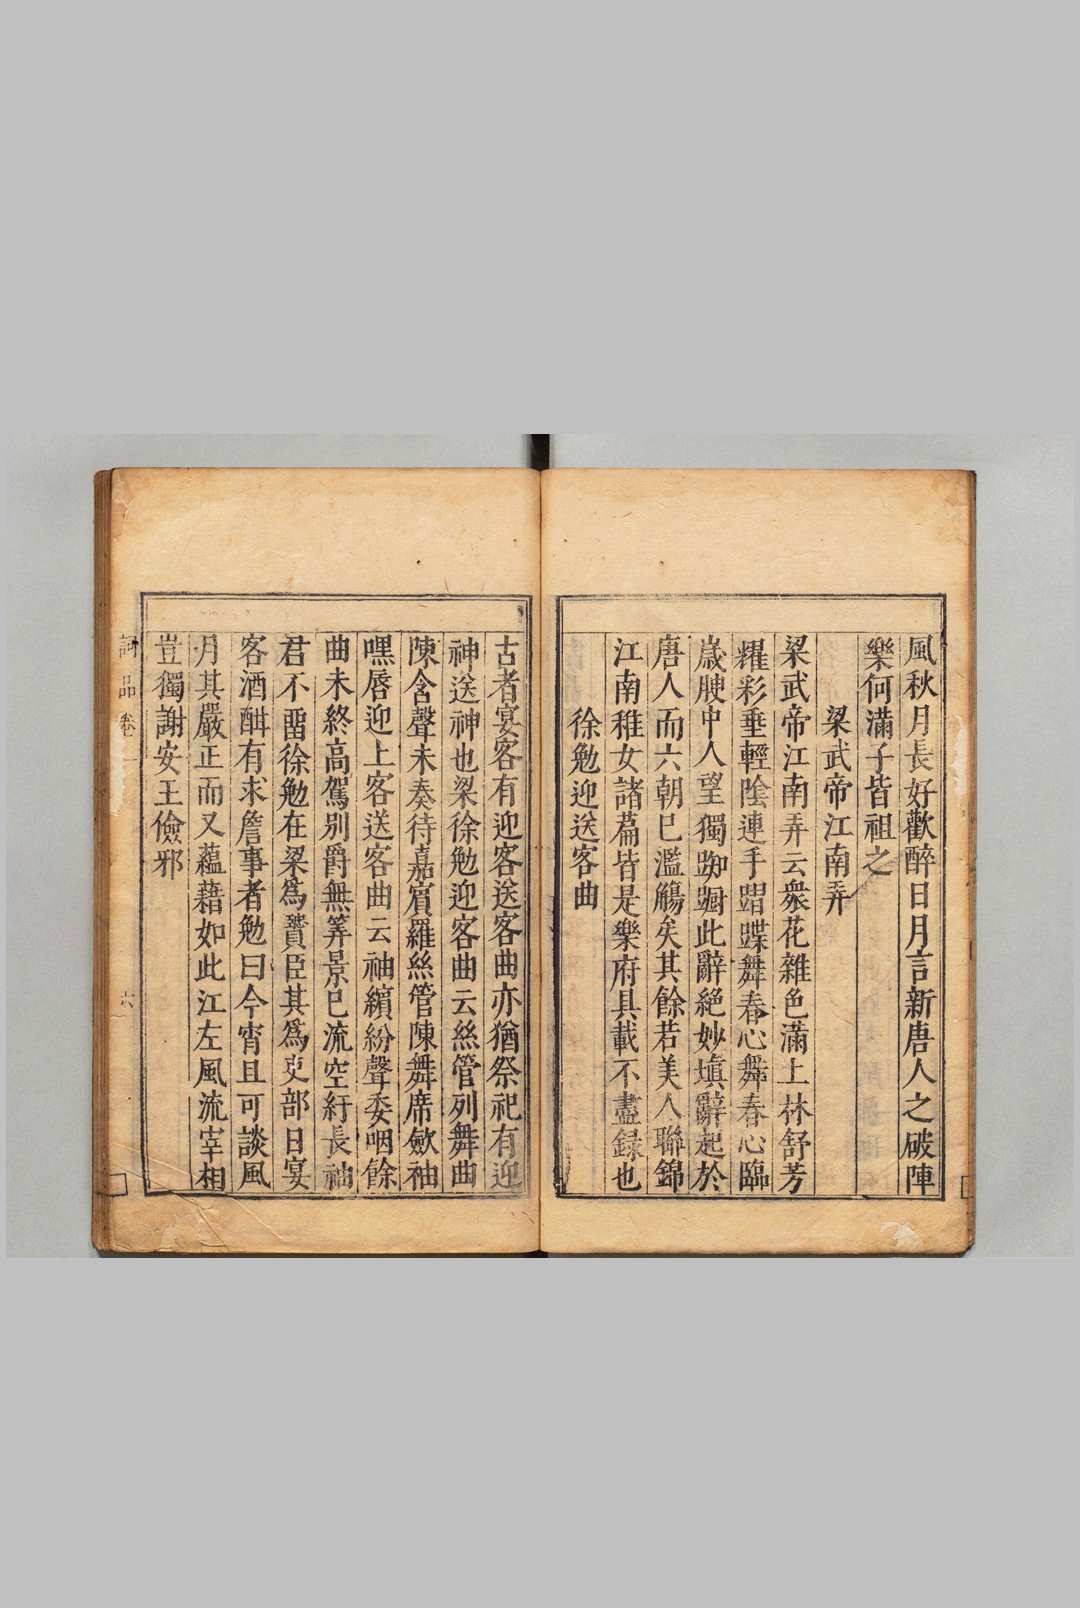 風秋月長好歡醉日月言新唐人之破陣
樂何滿子皆祖之
梁武帝江南弄
梁武帝江南弄云衆花雜色滿上林舒芳
耀彩垂輕陰連手躞蹀舞春心舞春心臨
歲腴中人望獨踟躕此辭絕妙塡辭起於
唐人而六朝已濫觴矣其餘若美人聯錦
江南稚女諸篇皆是樂府具載不盡録也
徐勉迎送客曲
古者宴客有迎客送客曲亦猶祭祀有迎
神送神也梁徐勉迎客曲云絲管列舞曲
陳含聲未奏待嘉賓羅絲管陳舞席歛袖
嘿唇迎上客送客曲云袖繽紛聲委咽餘
曲未終高駕別爵無筭景已流空紆長袖
君不畱徐勉在梁爲賢臣其爲吏部日宴
客酒酣有求詹事者勉曰今宵且可談風
月其嚴正而又蘊藉如此江左風流宰相
豈獨謝安王儉邪
詞品 卷一 六